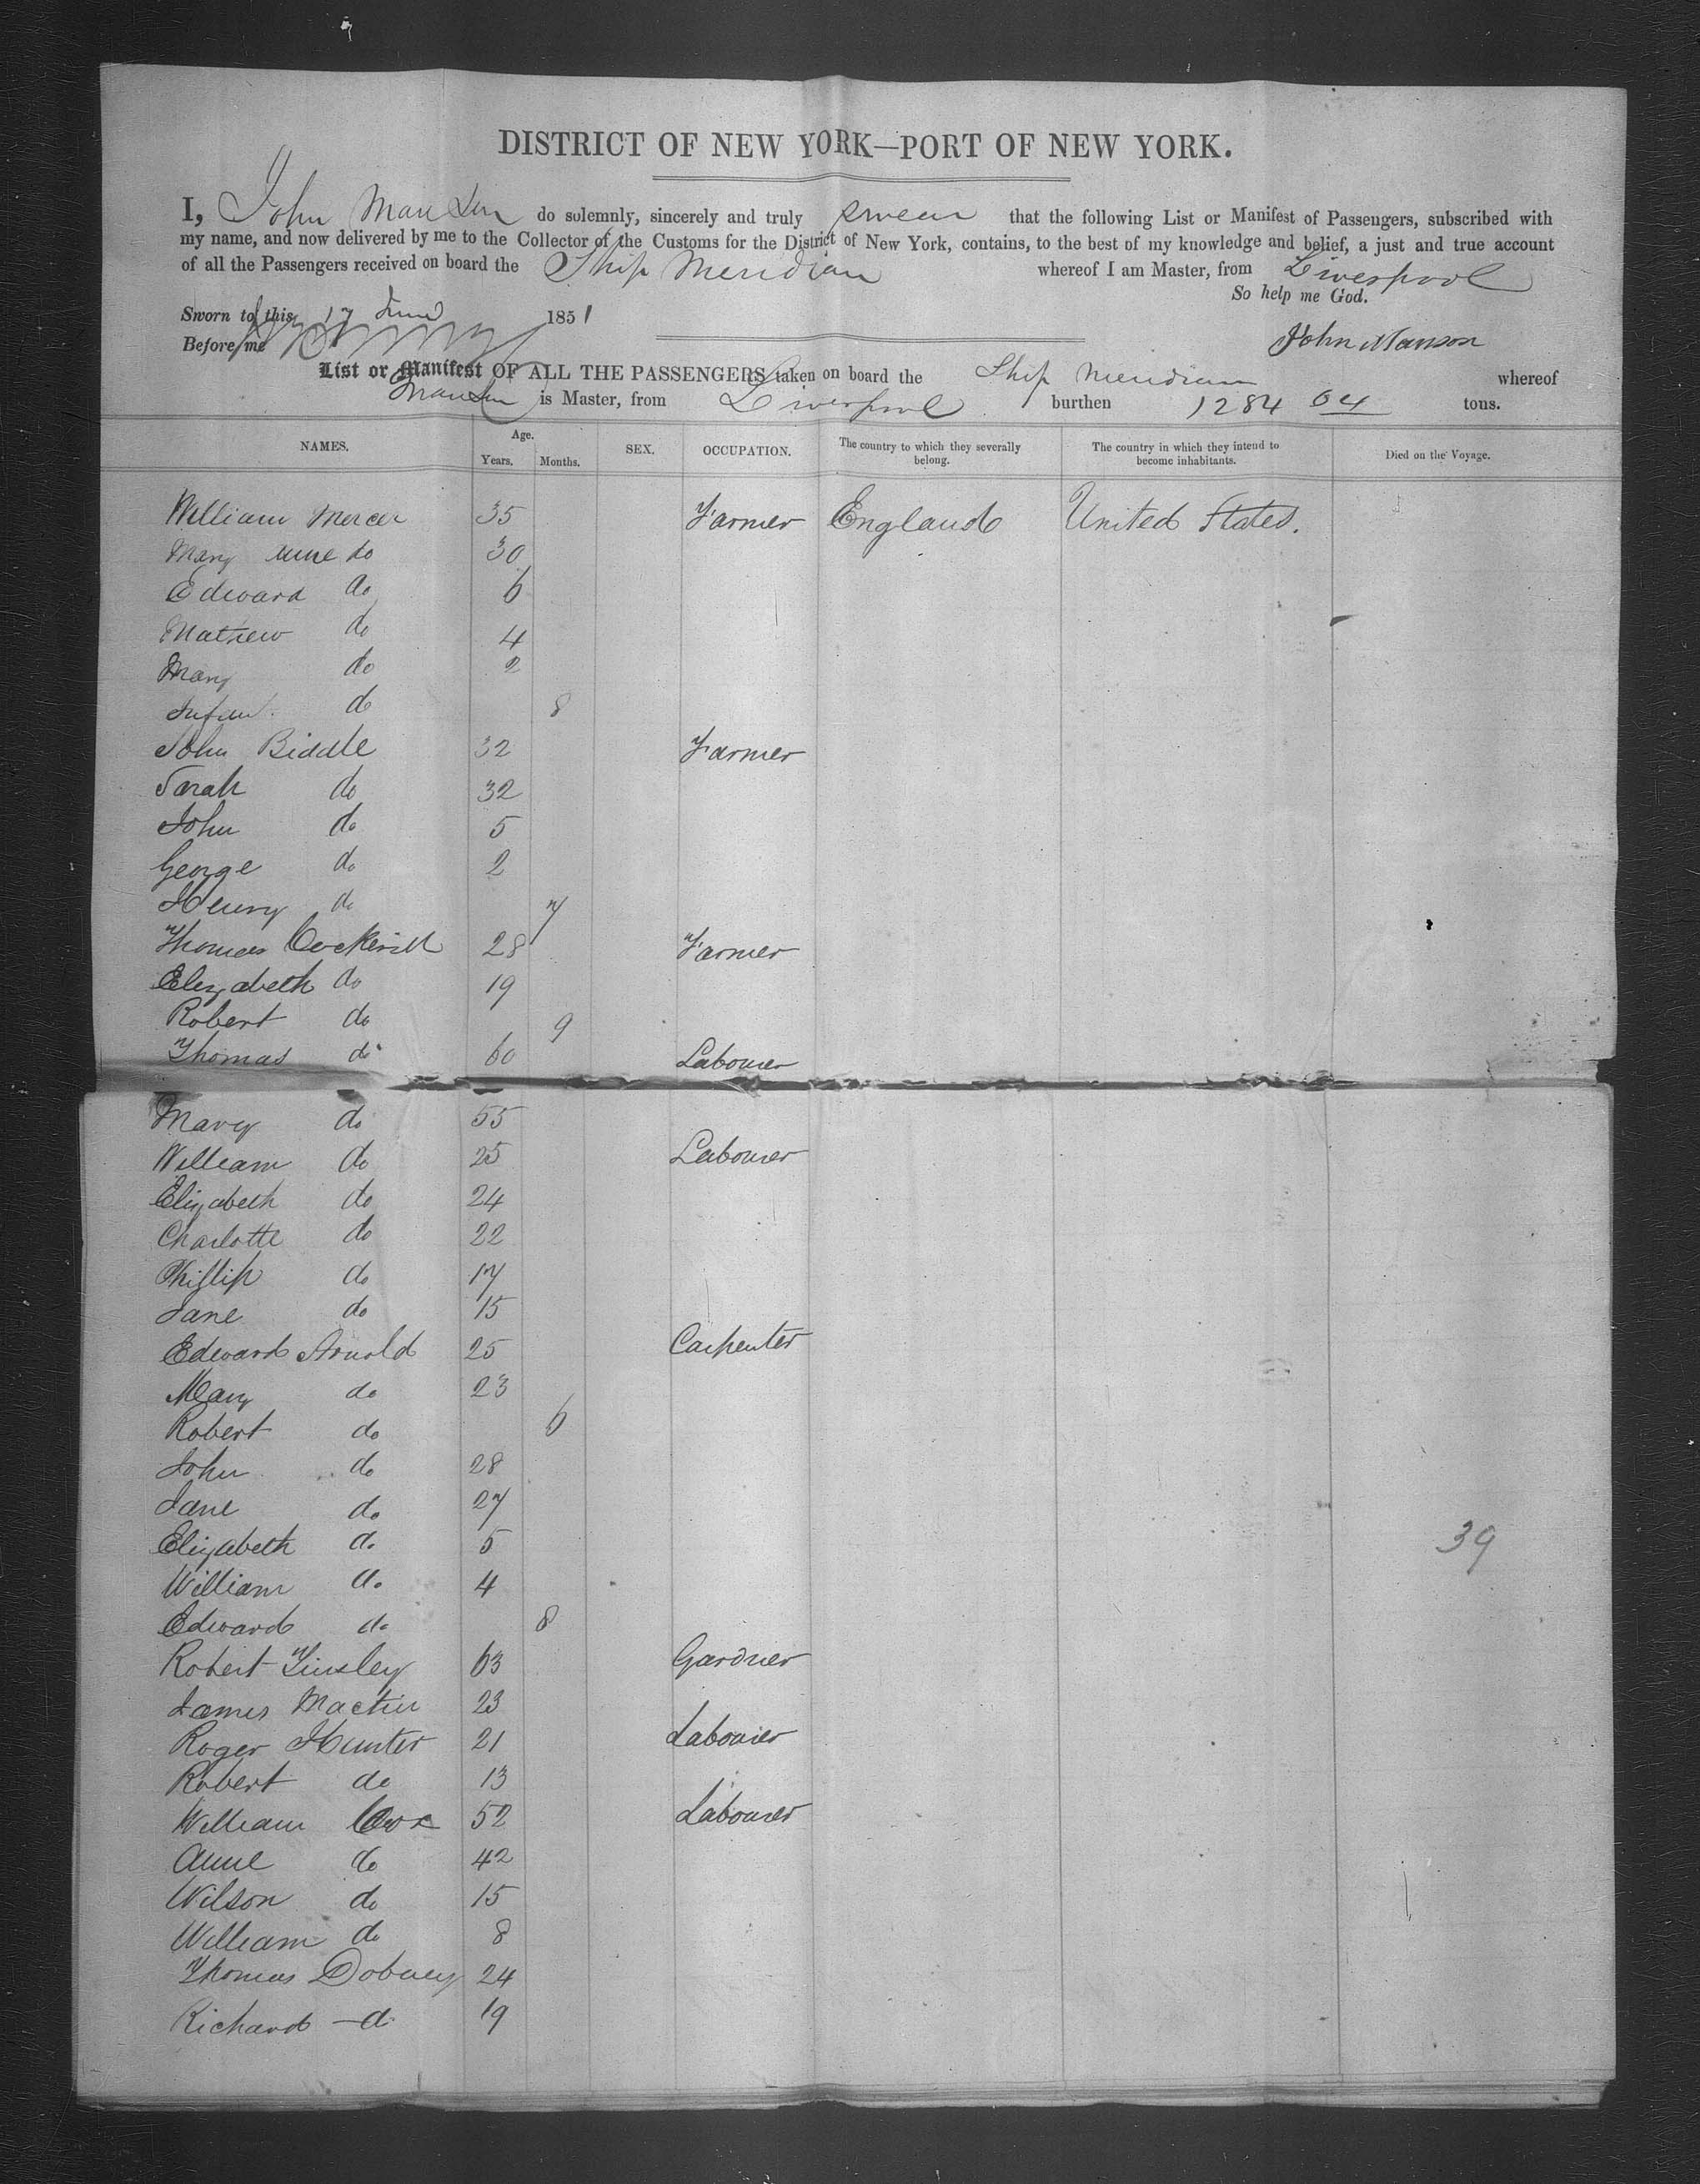 DISTRICT OF NEW YORK—PORT OF NEW YORK.
I, John Manson do solemnly, sincerely and truly swear that the following List or Manifest of Passengers, subscribed with
my name, and now delivered by me to the Collector of the Customs for the District of New York, contains, to the best of my knowledge and belief, a just and true account
of all the Passengers received on board the Ship Meridian whereof I am Master, from Liverpool
So help me God.
Sworn to this 17 June 1851
Before me
John Manson
List or Manifest OF ALL THE PASSENGERS taken on board the Ship Meridian whereof
Manson is Master, from Liverpool burthen 1284 04 tons.
NAMES. Age. Years. Months. SEX. OCCUPATION. The country to which they severally belong. The country in which they intend to become inhabitants. Died on the Voyage.
William Mercer 35 Farmer England United States.
Mary Anne do 30
Edward do 6
Mathew do 4
Mary do 2
Infant do 8
John Biddle 32 Farmer
Sarah do 32
John do 5
George do 2
Henry do 7
Thomas Cockerill 28 Farmer
Elizabeth do 19
Robert do 9
Thomas do 60 Labourer
Mary do 55
William do 25 Labourer
Elizabeth do 24
Charlotte do 22
Phillip do 17
Jane do 15
Edward Arnold 25 Carpenter
Mary do 23
Robert do 6
John do 28
Jane do 27
Elizabeth do 5
39
William do 4
Edward do 8
Robert Tinsley 63 Gardner
James Martin 23
Roger Hunter 21 Labourer
Robert do 13
William Cox 52 Labourer
Anne do 42
Wilson do 15
William do 8
Thomas Dobney 24
Richard do 19